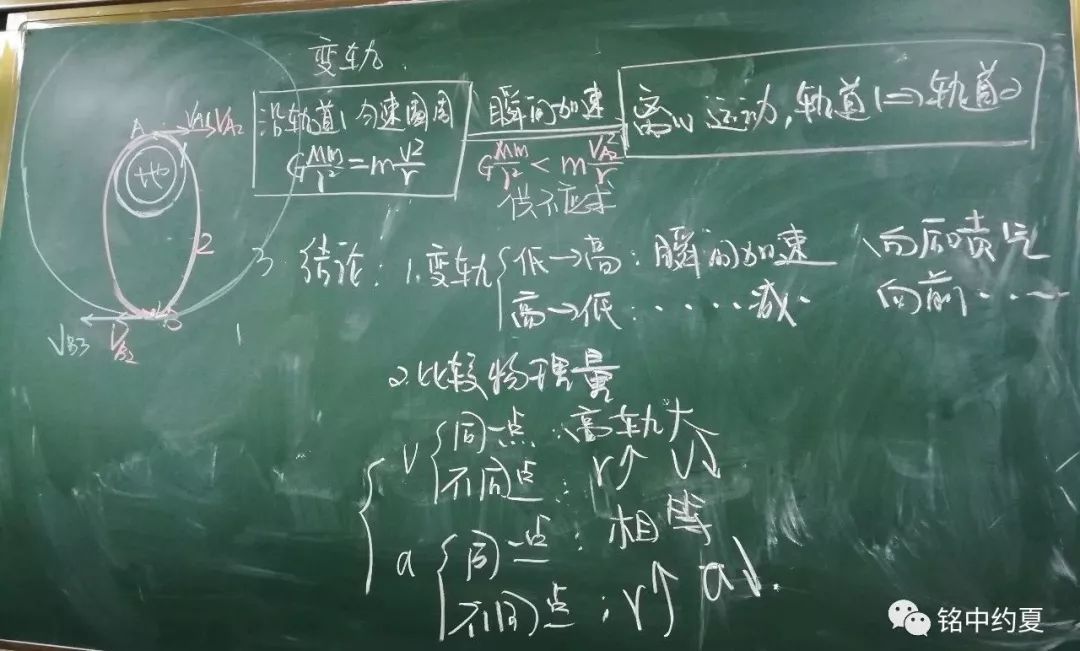 变轨
沿轨道1匀速圆周
G Mm/r² = m v²/r
瞬间加速
G Mm/r² < m V_A2²/r
供不应求
离心运动,轨道1⇒轨道2
A V_A1 V_A2
地
2
3
1
B
V_B3 V_B2
结论:1.变轨
低→高:瞬间加速 向后喷气
高→低:‥‥‥减‥ 向前‥‥
2.比较物理量
v
同一点:高轨大
不同点:r↑ v↓
a
同一点:相等
不同点:r↑ a↓.
铭中约夏